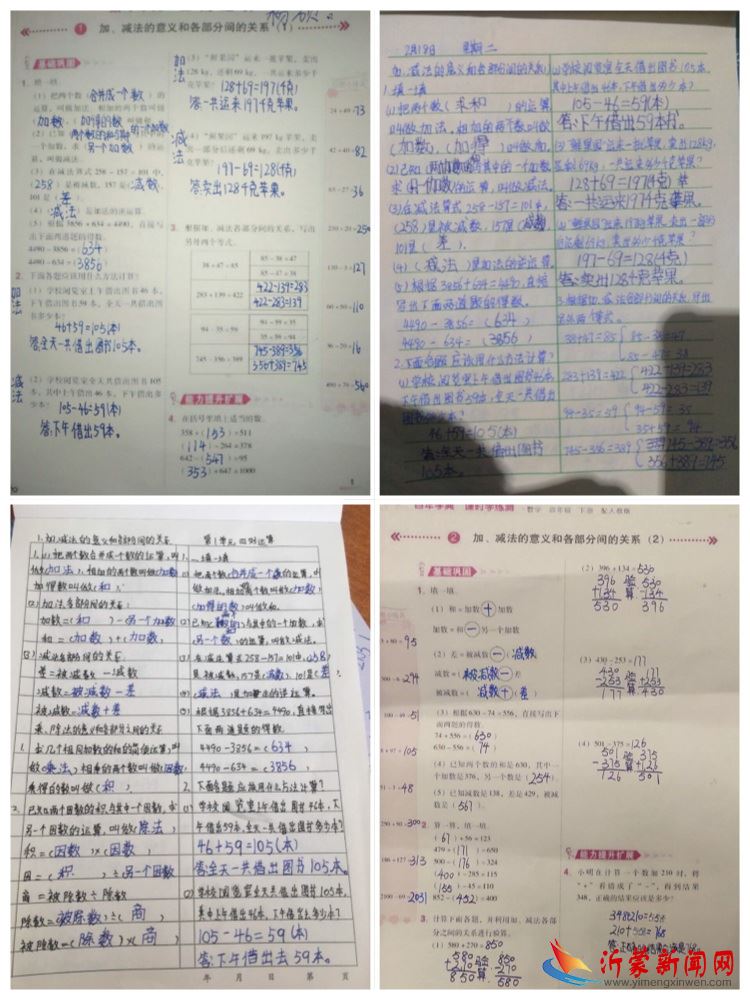 1 加、减法的意义和各部分间的关系（1）
基础巩固
1. 填一填。
(1) 把两个数（合并成一个数）的
运算，叫做加法。相加的两个数叫做
(3) 在减法算式 258－157＝101 中，
（258）是被减数，157 是（减数），
101 是（差）。
（4）（减法）是加法的逆运算。
(5) 根据 3856＋634＝4490，直接写
出下面两道题的得数。
4490－3856＝（634）
4490－634＝（3856）
2. 下面各题应该用什么方法计算？
(1) 学校阅览室上午借出图书 46 本，
下午借出图书 59 本，全天一共借出图
书多少本？
加法
46+59=105(本)
答:全天一共借出图书105本。
(2) 学校阅览室全天共借出图书 105
本，其中上午借出 46 本，下午借出多
少本？
减法
105-46=59(本)
答:下午借出59本。
加法
128 kg，还剩 69 kg，一共运来多少千
克苹果？
128+69=197(千克)
答:一共运来197千克苹果。
减法
(4) “鲜果园”运来 197 kg 苹果，卖出
一部分后还剩 69 kg，卖出多少千
克苹果？
197-69=128(千克)
答:卖出128千克苹果。
3. 根据加、减法各部分间的关系，写出
另外两个算式。
38＋47＝85
85－38＝47
85－47＝38
283＋139＝422
422-139=283
422-283=139
94－35＝59
94－59＝35
35＋59＝94
745－356＝389
745-389=356
356+389=745
能力提升扩展
4. 在括号里填上适当的数。
358＋（153）＝511
（114）－264＝378
642－（547）＝95
（353）＋647＝1000
2月18日 星期二
加、减法的意义和各部分间的关系
1.填一填
(1)把两个数（求和）的运算
叫做加法。相加的两个数叫做
（加数），（加得）叫做和。
(3)在减法算式258-157=101中,
（258）是被减数,157是（减数）
101是（差）。
(4)（减法）是加法的逆运算。
(5)根据3856+634=4490,直接
写出下面两道题的得数。
4490-3856=（634）
4490-634=（3856）
2.下面各题应该用什么方法计算?
(1)学校阅览室上午借出图书46本,
下午借出图书59本,全天一共借出
图书多少本?
46+59=105(本)
答:全天一共借出图书
105本。
(2)学校阅览室全天借出图书105本,
其中上午借出46本,下午借出多少本?
105-46=59(本)
答:下午借出59本书。
128+69=197(千克)
答:一共运来197千克苹果。
197-69=128(千克)
答:卖出128千克苹果。
38+47=85
85-38=47
85-47=38
283+139=422
422-139=283
422-283=139
94-35=59
94-59=35
35+59=94
745-356=389
745-389=356
356+389=745
1.加、减法的意义和各部分间的关系
1.(1)把两个数合并成一个数的运算,叫
做（加法）,相加的两个数叫做（加数）
加得数叫做（和）。
(2)加法各部分间的关系:
加数=（和）-另一个加数
和=（加数）+（加数）
(3)减法各部分间的关系:
差=被减数-减数
减数=被减数-差
被减数=减数+差
乘、除法的意义和各部分之间的关系
1.求几个相同加数的和的简便运算,叫
做（乘法）相乘的两个数叫做（因数）
乘得的数叫做（积）。
2.已知两个因数的积与其中一个因数,求
另一个因数的运算,叫做（除法）
积=（因数）×（因数）
因=（积）÷另一个因数
商=被除数÷除数
除数=（被除数）÷（商）
被除数=（除数）×（商）
第1单元 四则运算
一.填一填
(1)把两个数（合并成一个数）的运算,叫
做加法,相加的两个数叫做（加数）
（加得的数）叫做和。
（另一个加数）的运算,叫做减法。
(3)在减法算式258-157=101中,（258）
是被减数,157是（减数）,101是（差）。
(4)（减法）是加法的逆运算。
(5)根据3856+634=4490,直接写出
下面两道题的得数
4490-3856=（634）
4490-634=（3856）
2.下面各题应该用什么方法计算?
(1)学校阅览室上午借出图书46本,下
午借出59本,全天一共借出图书多少本?
46+59=105(本)
答:全天一共借出图书105本。
(2)学校阅览室全天借出图书105本,
其中上午借出46本,下午借出多少本?
105-46=59(本)
答:下午借出去59本。
年 月 日 第 页
课时学练测
数学 四年级 下册 配人教版
2 加、减法的意义和各部分间的关系（2）
基础巩固
1. 填一填。
(1) 和＝加数＋加数
加数＝和－另一个加数
(2) 差＝被减数－（减数）
减数＝（被减数－差）
被减数＝（减数＋差）
(3) 根据 630－74＝556，直接写出下
面两题的得数。
74＋556＝（630）
630－556＝（74）
(4) 已知两个数的和是 630，其中一
个加数是 376，另一个是（254）。
(5) 已知减数是 138，差是 429，被减
数是（567）。
2. 算一算，填一填。
（67）＋56＝123
479＋（171）＝650
500－（176）＝324
（400）－285＝115
（155）－45＝110
852－（452）＝400
3. 计算下面各题，并利用加、减法各部
分之间的关系进行验算。
(1) 580＋270＝850
580
+270
850
验算
850
-270
580
(2) 396＋134＝530
396
+134
530
验算
530
-134
396
(3) 430－253＝177
430
-253
177
验算
177
+253
430
(4) 501－375＝126
501
-375
126
验算
375
+126
501
能力提升扩展
4. 小明在计算一个数加 210 时，将
“＋”看错成了“－”，得到结果
348，正确的结果应该是多少？
348+210=558
210+558=768
沂蒙新闻网
www.yimengxinwen.com